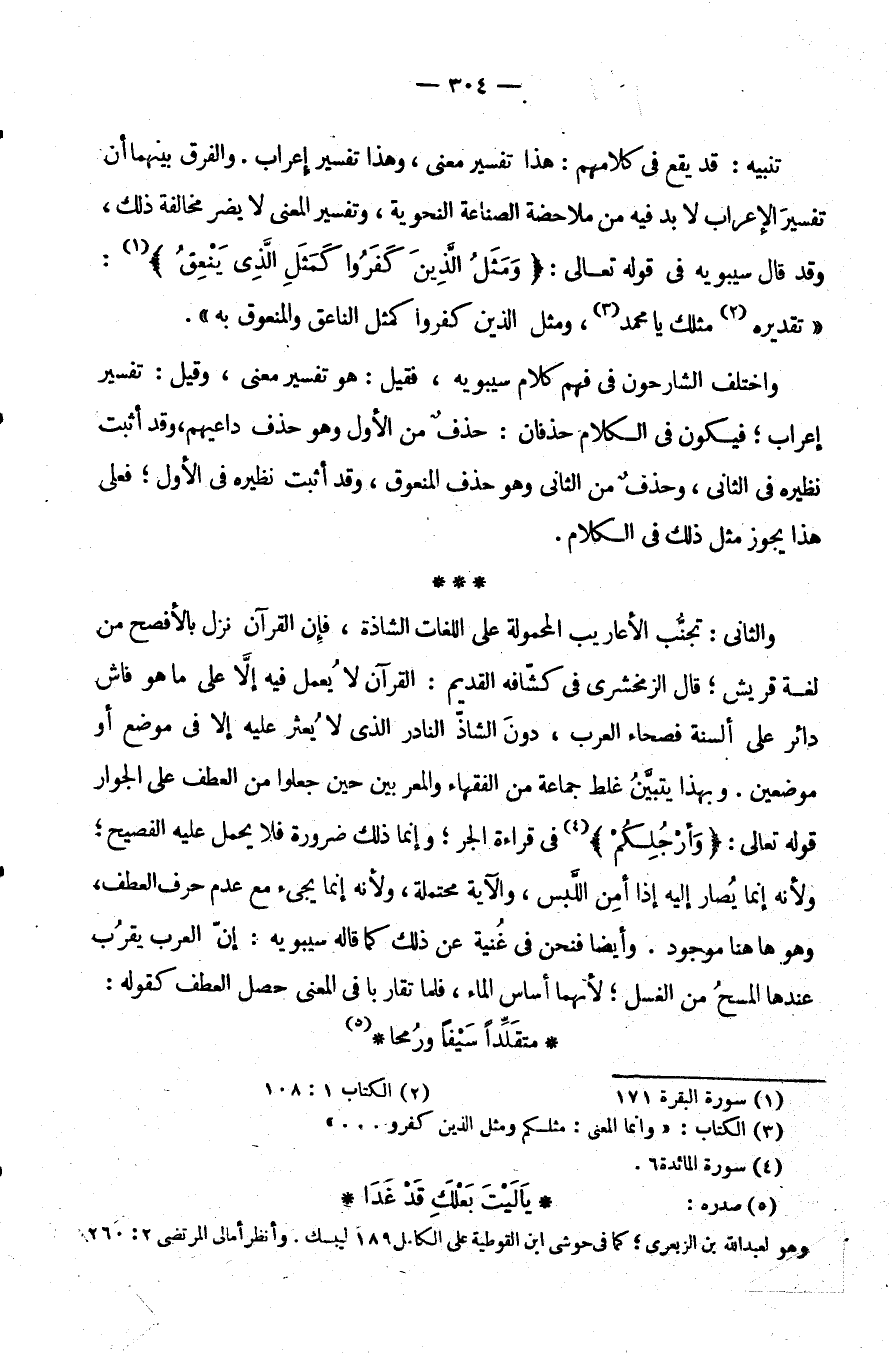 — ٣٠٤ —
تنبيه : قد يقع فى كلامهم : هذا تفسير معنى ، وهذا تفسير إعراب . والفرق بينهما أن
تفسيرَ الإعراب لا بد فيه من ملاحضة الصناعة النحوية ، وتفسير المعنى لا يضر مخالفة ذلك ،
وقد قال سيبويه فى قوله تعالى : ﴿ وَمَثَلُ الَّذِينَ كَفَرُوا كَمَثَلِ الَّذِى يَنْعِقُ ﴾(١) :
« تقديره (٢) مثلك يا محمد(٣) ، ومثل الذين كفروا كمثل الناعق والمنعوق به » .
واختلف الشارحون فى فهم كلام سيبويه ، فقيل : هو تفسير معنى ، وقيل : تفسير
إعراب ؛ فيكون فى الكلام حذفان : حذفٌ من الأول وهو حذف داعيهم،وقد أثبت
نظيره فى الثانى ، وحذفٌ من الثانى وهو حذف المنعوق ، وقد أثبت نظيره فى الأول ؛ فعلى
هذا يجوز مثل ذلك فى الكلام .
* * *
والثانى : تجنُّب الأعاريب المحمولة على اللغات الشاذة ، فإن القرآن نزل بالأفصح من
لغة قريش ؛ قال الزمخشرى فى كشّافه القديم : القرآن لا يُعمل فيه إلَّا على ما هو فاش
دائر على ألسنة فصحاء العرب ، دونَ الشاذّ النادر الذى لا يُعثر عليه إلا فى موضع أو
موضعين . وبهذا يتبيَّنُ غلط جماعة من الفقهاء والمعربين حين جعلوا من العطف على الجوار
قوله تعالى : ﴿ وَأَرْجُلِكُمْ ﴾(٤) فى قراءة الجر ؛ وإنما ذلك ضرورة فلا يحمل عليه الفصيح ؛
ولأنه إنما يُصار إليه إذا أمِن اللَّبس ، والآية محتملة ، ولأنه إنما يجىء مع عدم حرف العطف،
وهو هاهنا موجود . وأيضا فنحن فى غُنية عن ذلك كما قاله سيبويه : إنّ العرب يقرُب
عندها المسحُ من الغسل ؛ لأنهما أساس الماء ، فلما تقاربا فى المعنى حصل العطف كقوله :
* متقَلِّداً سَيْفاً ورُمحا *(٥)
(١) سورة البقرة ١٧١ (٢) الكتاب ١ : ١٠٨
(٣) الكتاب : « وانما المعنى : مثلكم ومثل الذين كفرو . . . »
(٤) سورة المائدة ٦ .
(٥) صدره : * يَالَيْتَ بَعْلَكِ قَدْ غَدَا *
وهو لعبدالله بن الزبعرى ؛ كما فى حوشى ابن القوطية على الكامل ١٨٩ ليبسك . وأنظر أمالى المرتضى ٢ : ٢٦٠